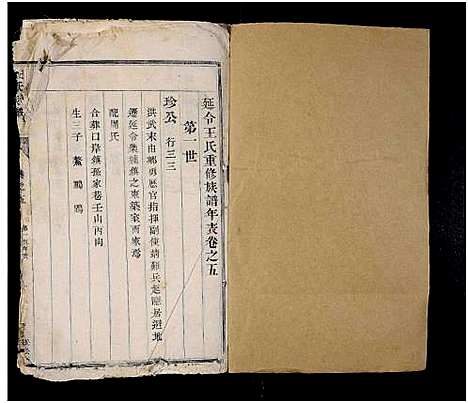 延令王氏重修族譜年表卷之五
第一世
珍公 行三三
洪武末由鄉勇歷官指揮副使靖難兵起隱居避地
遷延令柴墟鎮之東築室而家焉
配周氏
合葬口岸鎮孫家巷壬山丙向
生三子 鰲 鵬 鶚